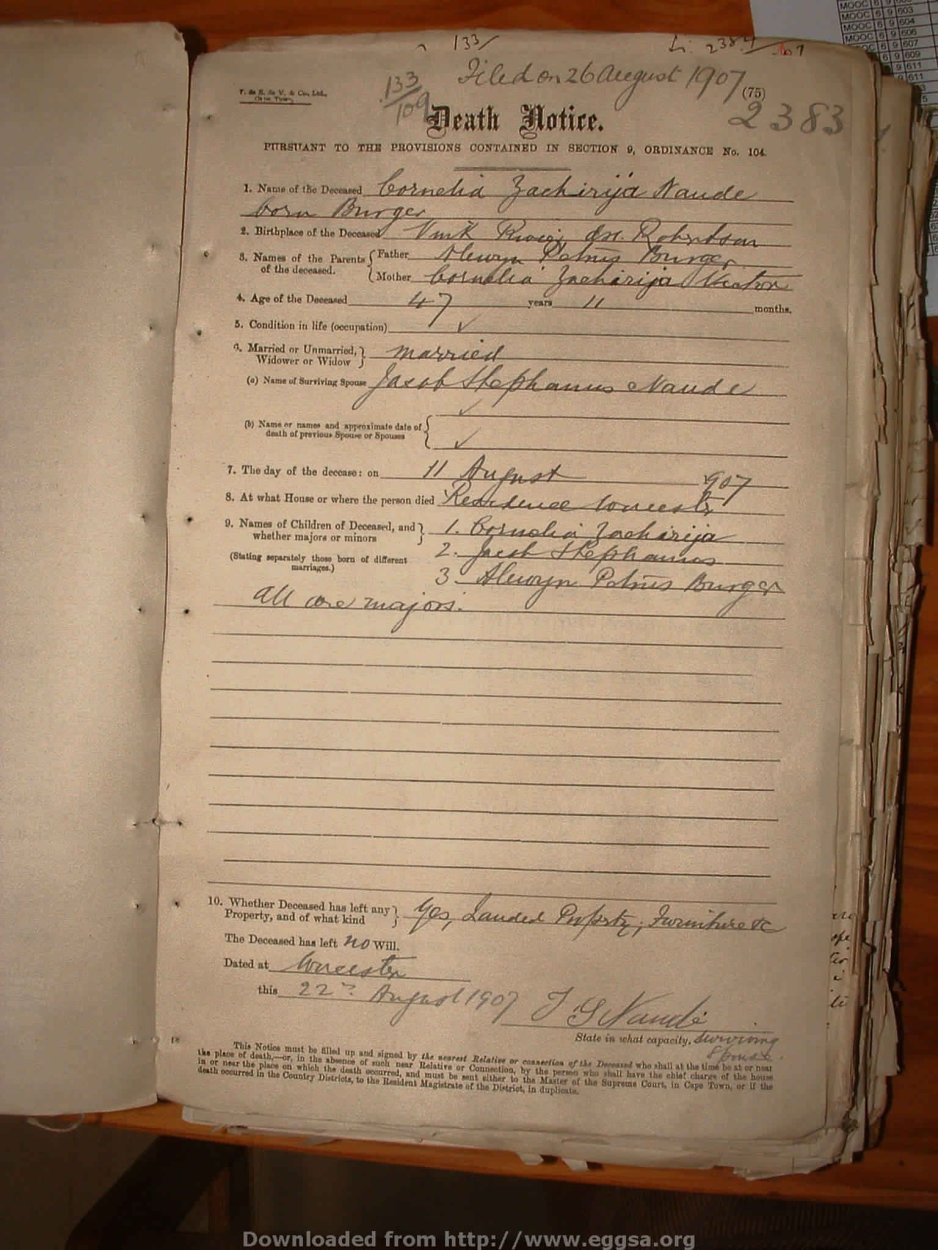 MOOC 6 9 604
MOOC 6 9 606
6 9 607
6 9 609
6 9 611
133/
Filed on 26 August 1907
T. de S. de V. & Co., Ltd.,
Cape Town.
133
109
(75)
2383
Death Notice.
PURSUANT TO THE PROVISIONS CONTAINED IN SECTION 9, ORDINANCE No. 104.
1. Name of the Deceased Cornelia Zacharija Naude
born Burger
2. Birthplace of the Deceased Vink Rivier Robertson
3. Names of the Parents of the deceased. Father Alewyn Petrus Burger
Mother Cornelia Zacharija
4. Age of the Deceased 47 years 11 months.
5. Condition in life (occupation) ✓
6. Married or Unmarried, Widower or Widow married
(a) Name of Surviving Spouse Jacob Stephanus Naude
✓
(b) Name or names and approximate date of
death of previous Spouse or Spouses ✓
7. The day of the decease: on 11 August 1907
8. At what House or where the person died Residence Worcester
9. Names of Children of Deceased, and
whether majors or minors 1. Cornelia Zacharija
(Stating separately those born of different
marriages.) 2. Jacob Stephanus
3. Alewyn Petrus Burger
All are majors.
10. Whether Deceased has left any
Property, and of what kind Yes, Landed Property, Furniture &c
The Deceased has left no Will.
Dated at Worcester
this 22nd August 1907 J S Naudé
State in what capacity, surviving
Spouse.
This Notice must be filled up and signed by the nearest Relative or connection of the Deceased who shall at the time be at or near
the place of death,—or, in the absence of such near Relative or Connection, by the person who shall have the chief charge of the house
in or near the place on which the death occurred, and must be sent either to the Master of the Supreme Court, in Cape Town, or if the
death occurred in the Country Districts, to the Resident Magistrate of the District, in duplicate.
Downloaded from http://www.eggsa.org